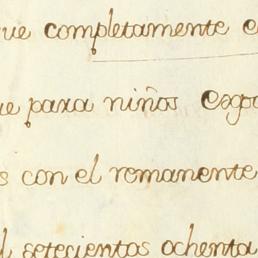 que completamente e
ue para niños espo
s con el remanente
l setecientos ochenta